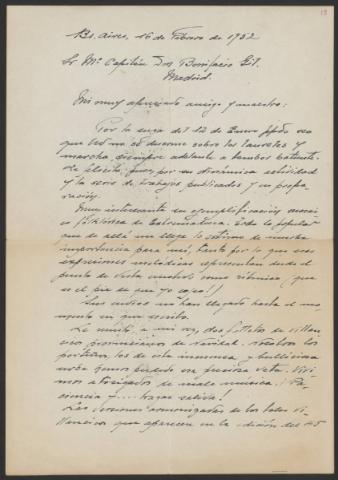 Bs. Aires, 16 de Febrero de 1952
Sr. Mº Capitán Don Bonifacio Gil.
Madrid.
Mi muy apreciado amigo y maestro:
Por la suya del 12 de Enero ppdo veo
que Ud no se duerme sobre los laureles y
marcha siempre adelante a tambor batiente.
Le felicito, pues, por su dinámica actividad
y la serie de trabajos publicados y en prepa-
ración.
Muy interesante su ejemplificación musical
folklórica de Extremadura. Todo lo popular
que de allí me llega lo estimo de mucha
importancia para mí, tanto por lo que esas
expresiones melódicas representan desde el
punto de vista modal como rítmico ¡que
es el pie de que yo cojeo!!
Sus envíos no han llegado hasta el mo-
mento en que escribo.
Le remito, a mi vez, dos folletos de villan-
cicos provincianos de Navidad. Nosotros los
porteños, los de esta inmensa y bulliciosa
urbe hemos perdido esa preciosa veta. Vivi-
mos atosigados de mala música. ¡Pa-
ciencia y .... tragar saliva!
Las versiones armonizadas de los tales vi-
llancicos que aparecen en la edición del 45